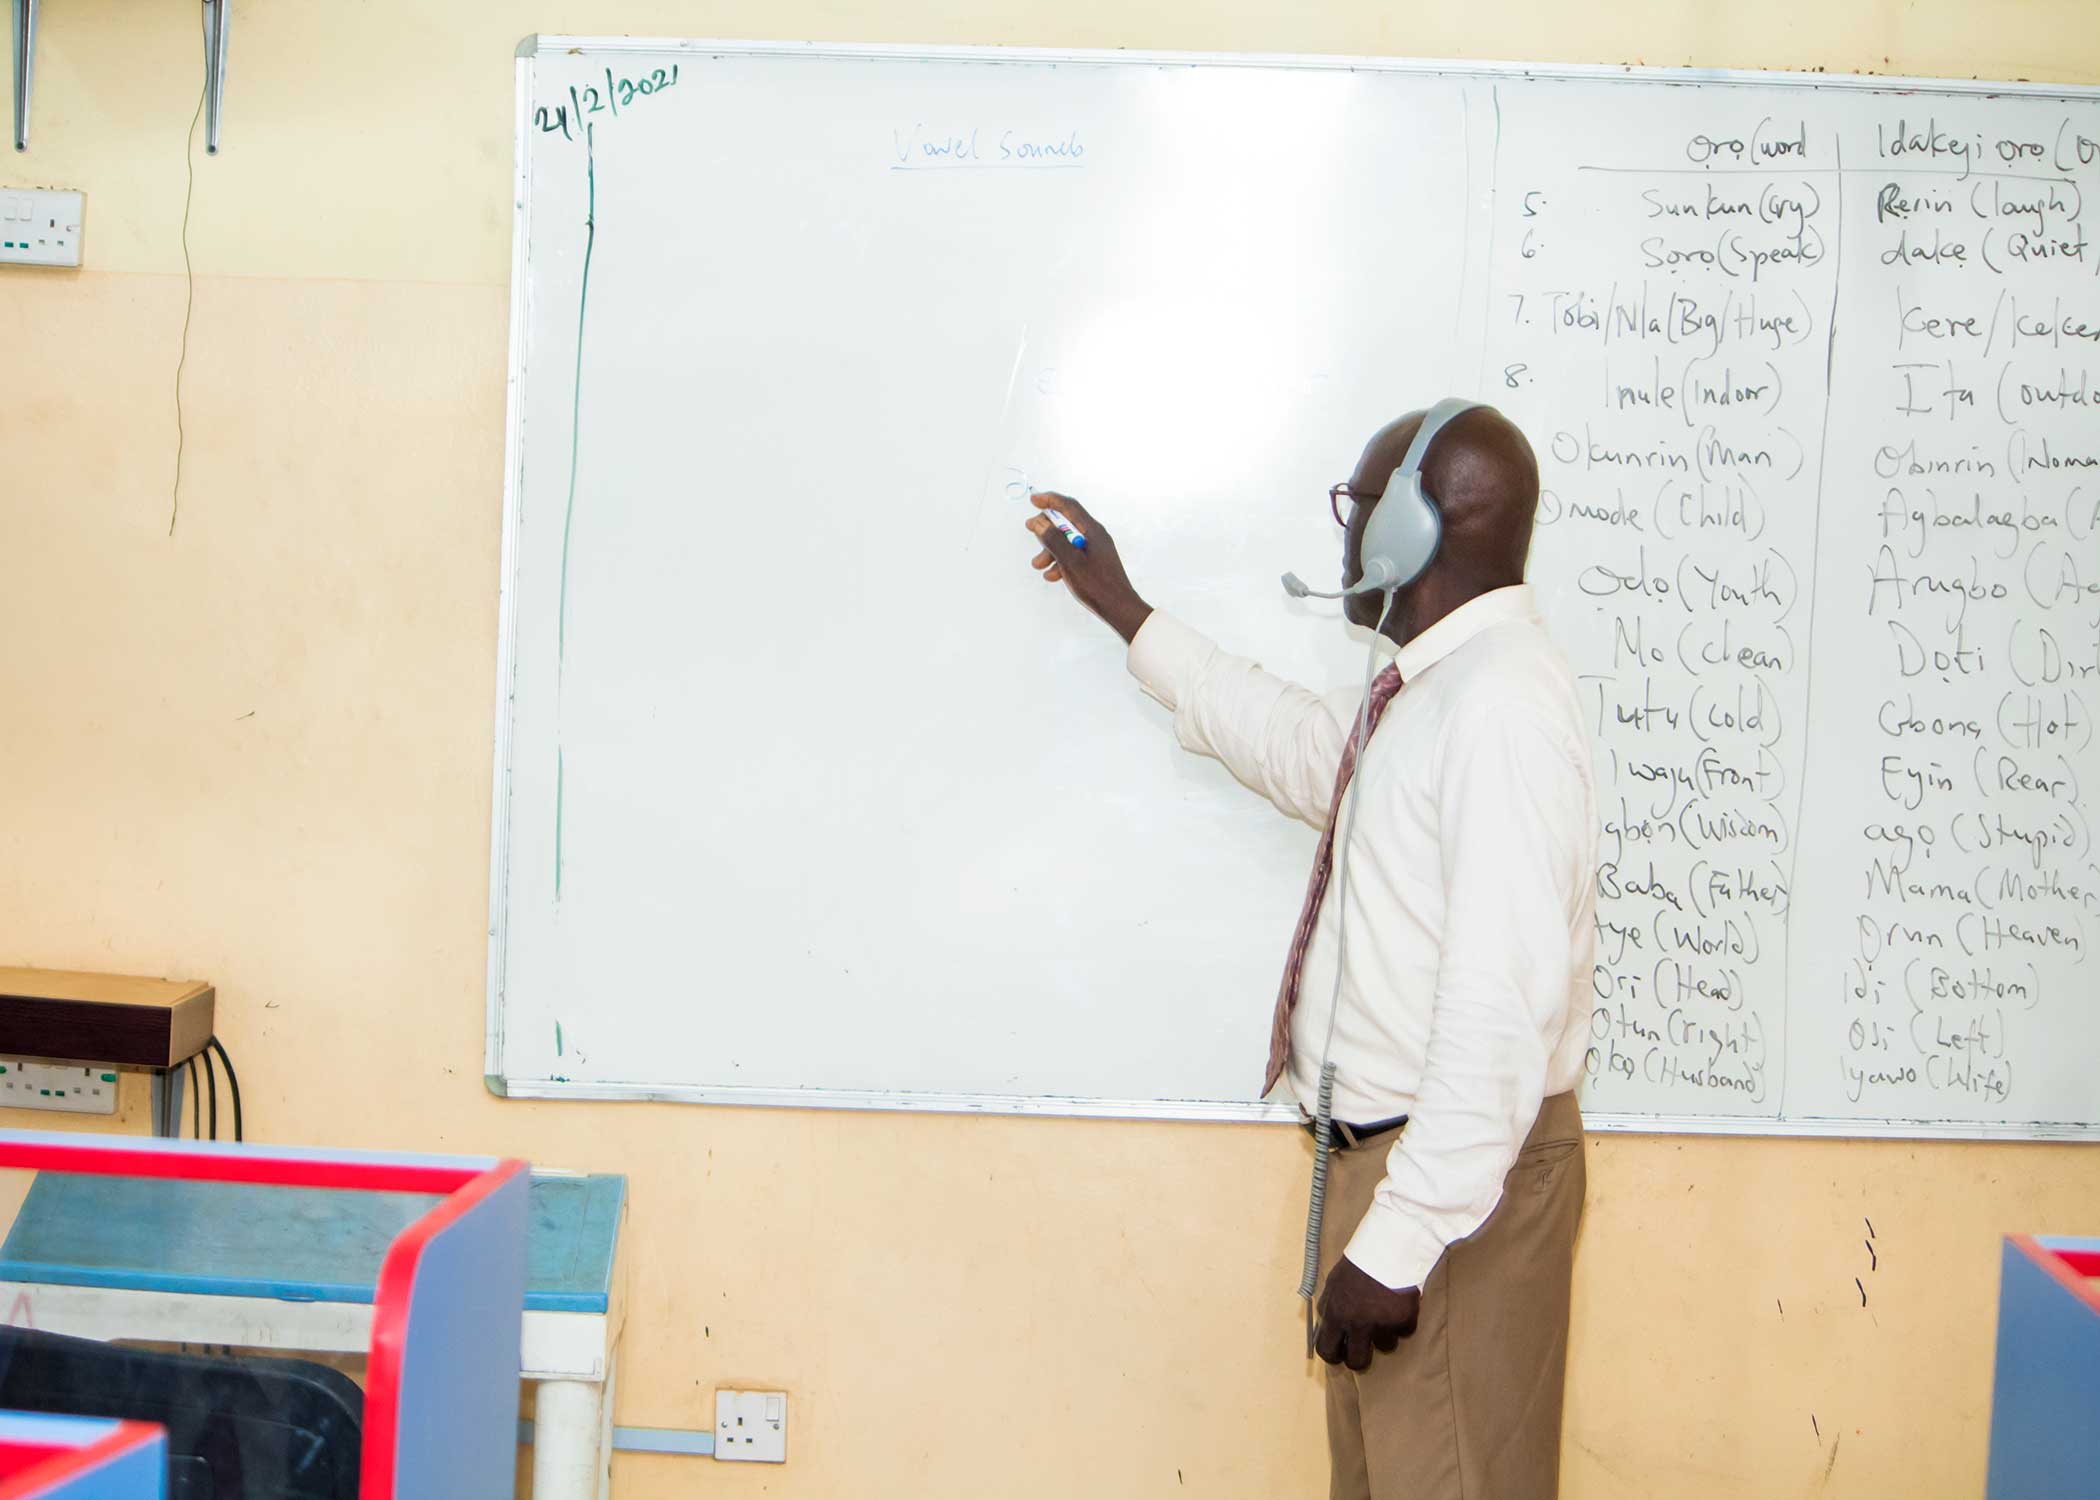 24/2/2021
Vowel Sounds
Ọrọ (word | Idakeji ọrọ (
5. Sunkun (Cry) Rẹrin (laugh)
6. Sọrọ (Speak) dakẹ (Quiet
7. Tobi/Nla (Big/Huge) Kere/
8. Inule (Indoor) Ita (outdo
Okunrin (Man) Obinrin (
Omode (Child) Agbalagba (
Ọdọ (Youth) Arugbo (
Mo (clean) Dọti (Dirt
Tutu (Cold) Gbona (Hot)
Iwaju (Front) Eyin (Rear)
gbọn (Wisdom) agọ (Stupid)
Baba (Father) Mama (Mother
(World) Ọrun (Heaven)
Ori (Head) Idi (Bottom)
Otun (right) Osi (Left)
Ọkọ (Husband) Iyawo (Wife)